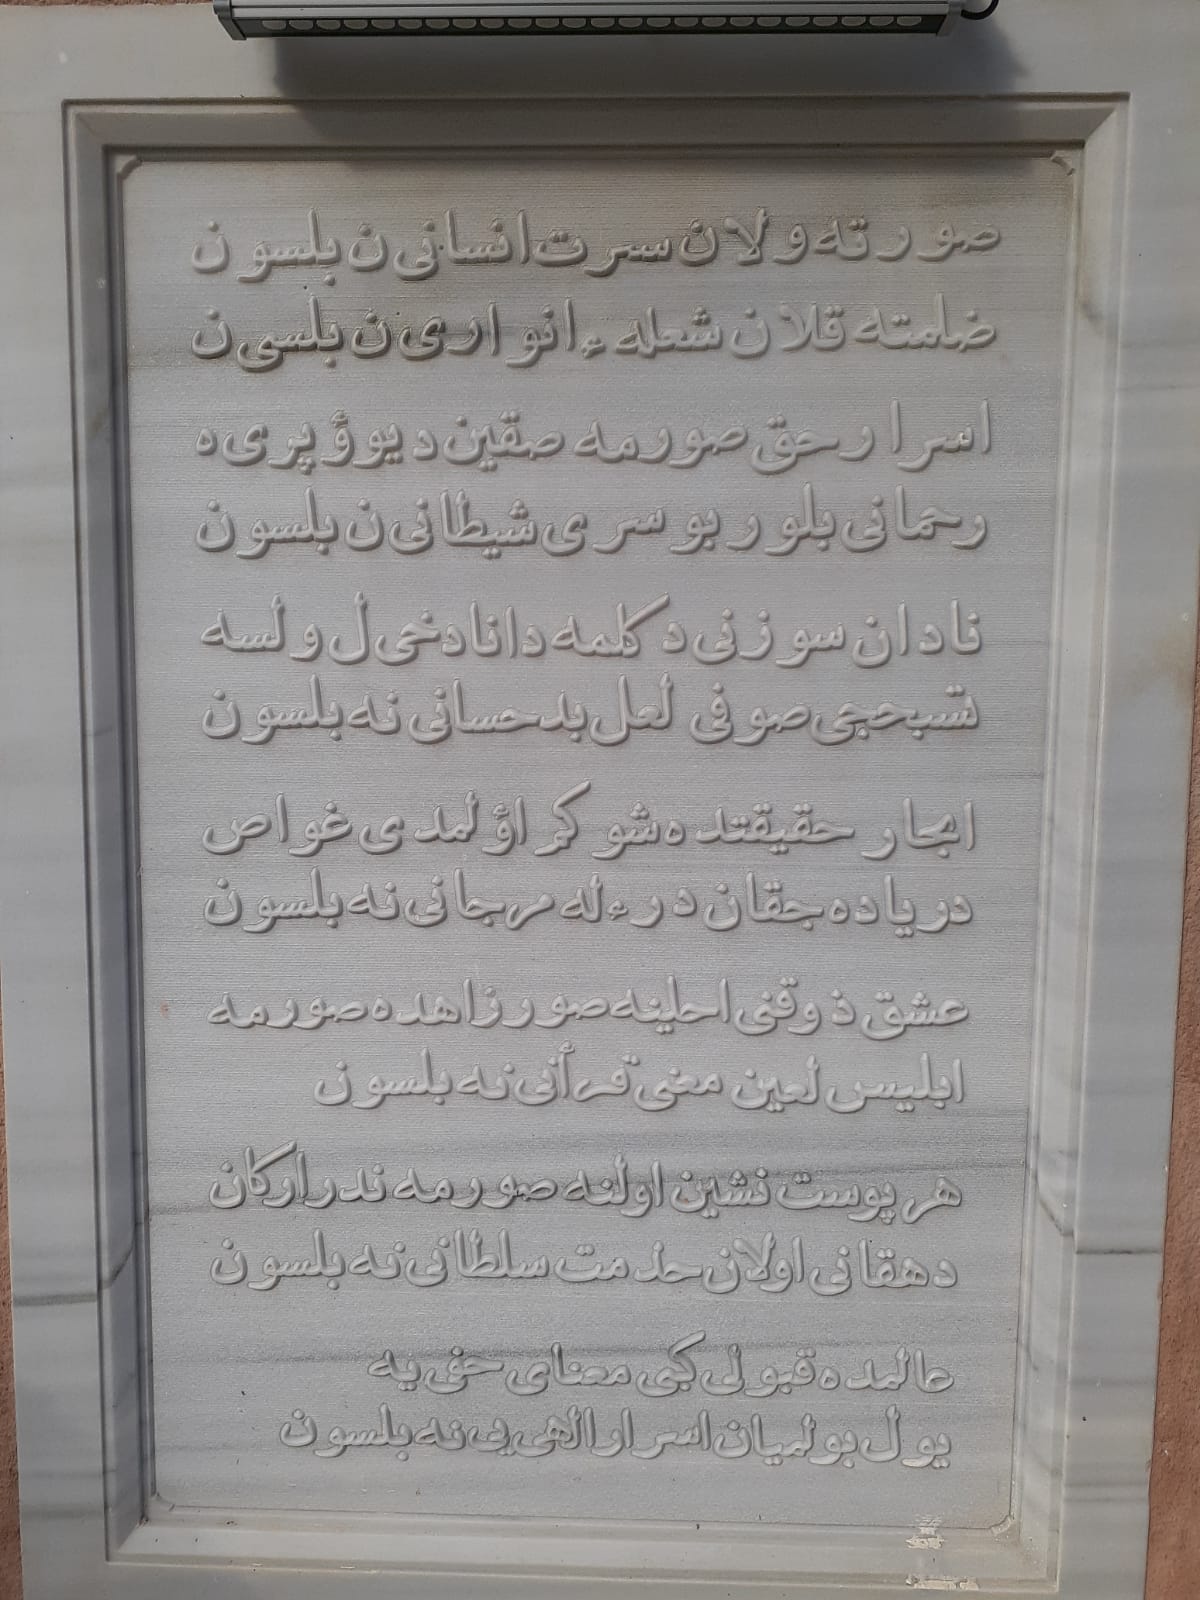 صورته ولان سرت انسانی ن بلسون
ضلمته قلان شعله ء انواری ن بلسی ن
اسرار حق صورمه صقین دیوؤ پری ه
رحمانی بلور بو سری شیطانی ن بلسون
نادان سوزنی دكلمه دانا دخی ل ولسه
تسبحجی صوفی لعل بدحسانی نه بلسون
ابحار حقیقتده شو كم اؤلمدی غواص
دریاده جقان درء له مرجانی نه بلسون
عشق ذوقنی احلینه صور زاهده صورمه
ابلیس لعین معنی قرأنی نه بلسون
هر پوست نشین اولنه صورمه ندر اركان
دهقانی اولان خدمت سلطانی نه بلسون
عالمده قبولی كبی معنای خفی یه
یول بولمیان اسرار الهی یی نه بلسون